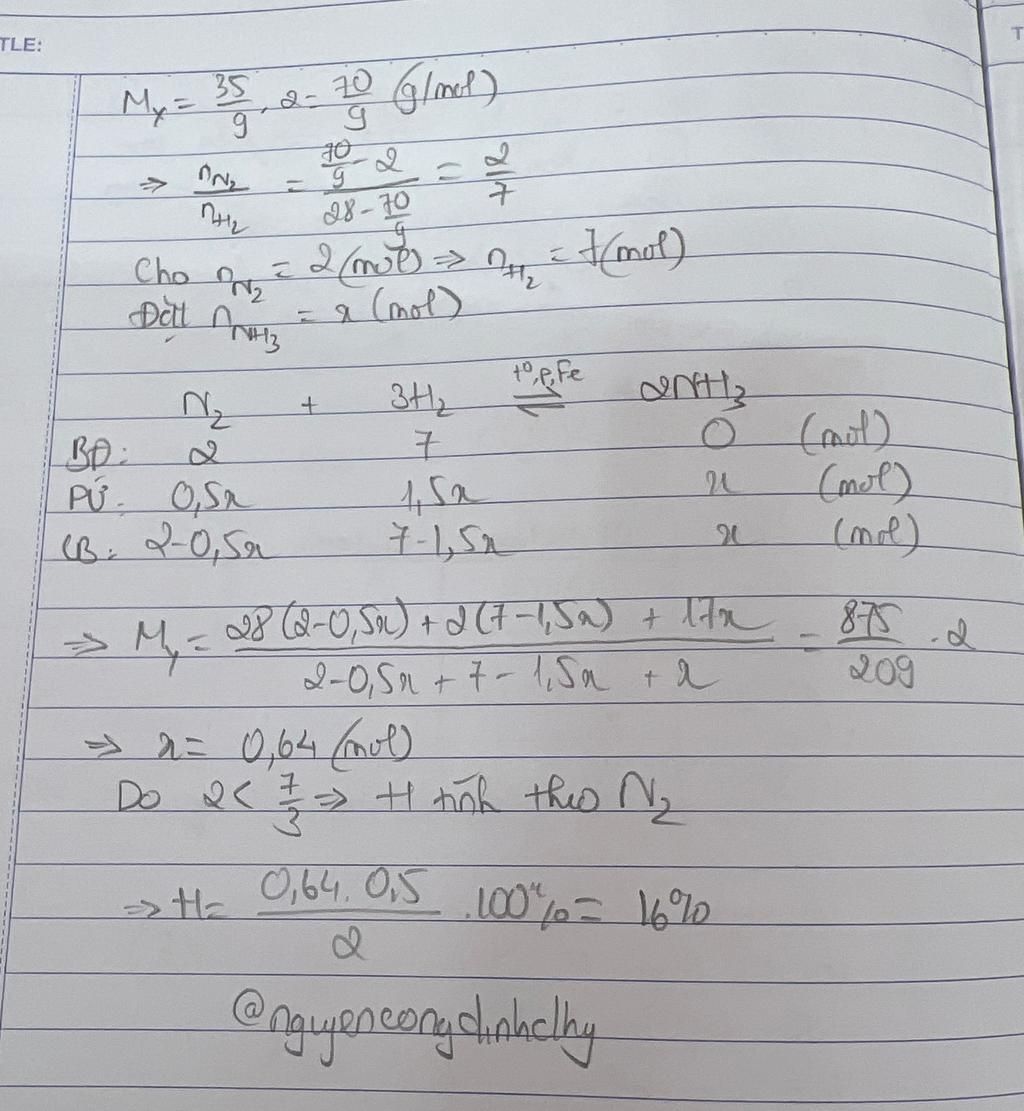 TLE:
T
Mx = 35/9 . 2 = 70/9 (g/mol)
⇒ nN₂/nH₂ = (70/9 - 2)/(28 - 70/9) = 2/7
Cho nN₂ = 2 (mol) ⇒ nH₂ = 7 (mol)
Đặt nNH₃ = x (mol)
N₂ + 3H₂ ⇌ (t⁰, p, Fe) 2NH₃
BĐ: 2 7 0 (mol)
PỨ: 0,5x 1,5x x (mol)
CB: 2-0,5x 7-1,5x x (mol)
⇒ My = (28(2-0,5x) + 2(7-1,5x) + 17x)/(2-0,5x + 7-1,5x + x) = 875/209 . 2
⇒ x = 0,64 (mol)
Do 2 < 7/3 ⇒ H tính theo N₂
⇒ H = (0,64. 0,5)/2 .100% = 16%
@nguyencongdinhclhy